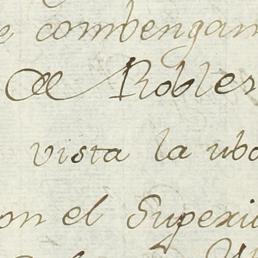 e combengan
de Robles
vista la ubo
on el Superio